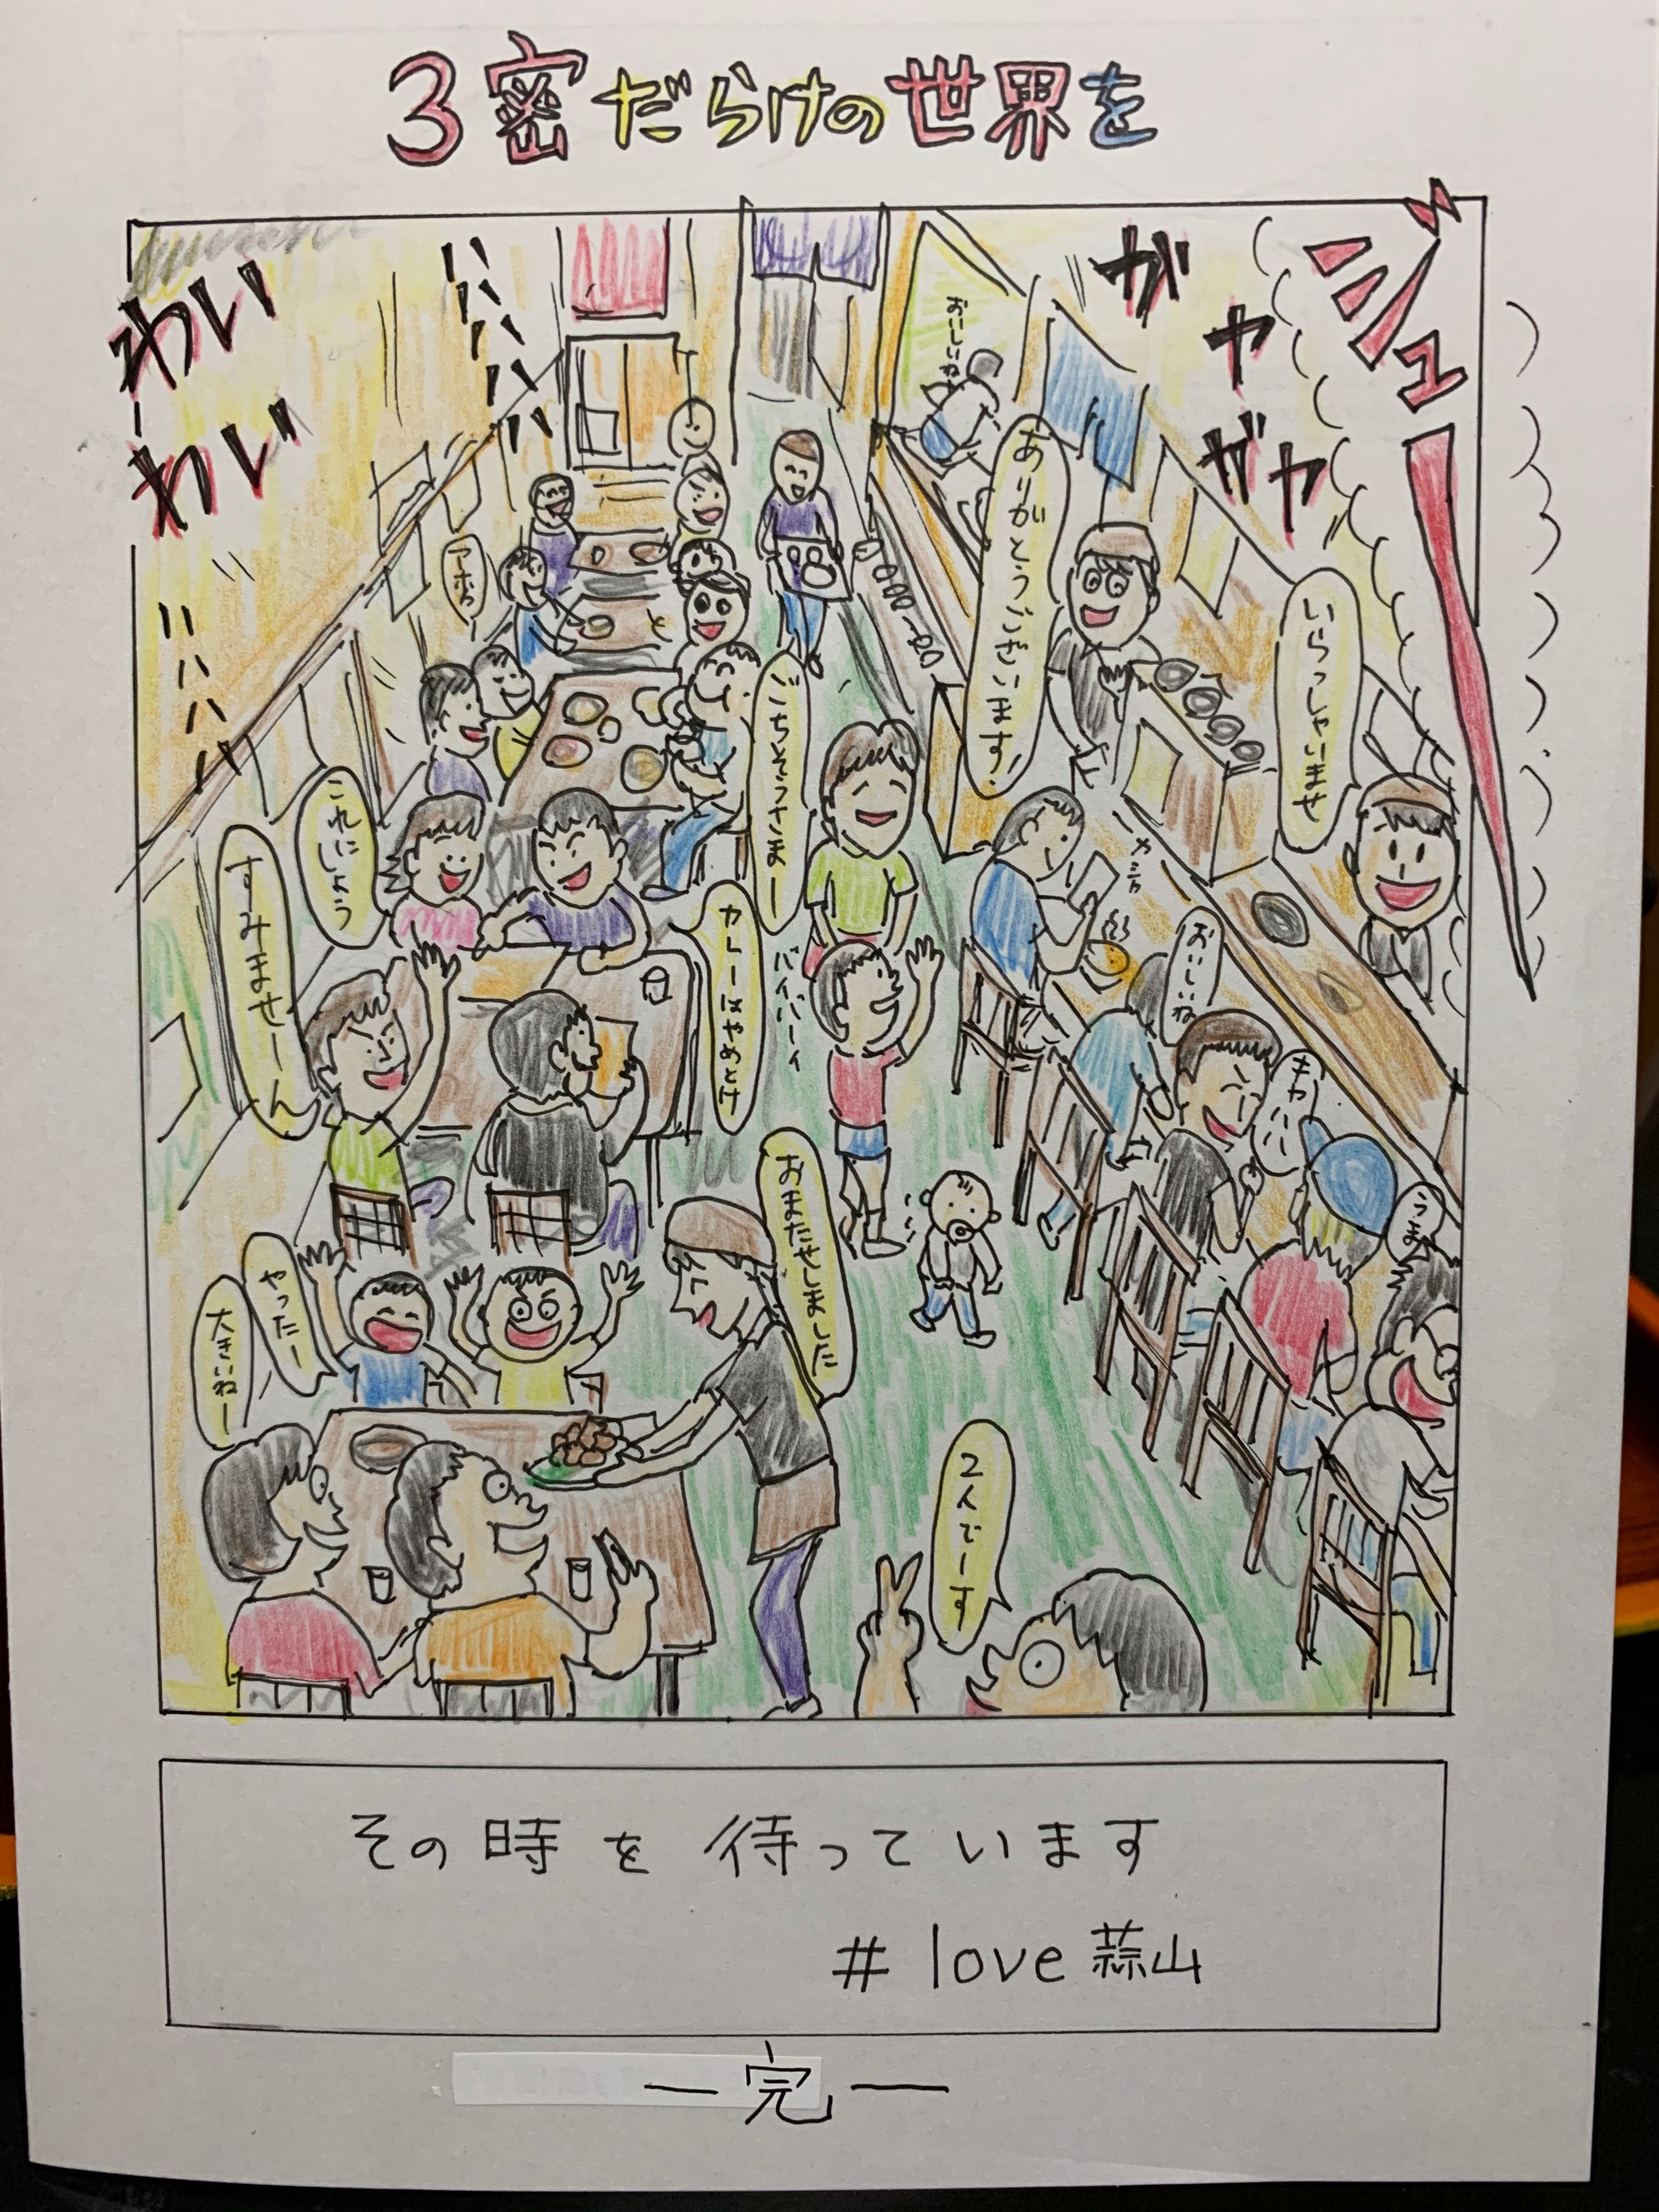 3密だらけの世界を
わい
わい
ハハハハハ
ガヤ
ガヤ
ジュー
おいしいね
ありがとうございます!
いらっしゃいませ
ごちそうさまー
これにしよう
すみませーん
カレーはやめとけ
バイバーイ
おいしいね
キャハハハ
うま
おまたせしました
やったー
大きいねー
2人でーす
その時を待っています
# love 蒜山
— 完 —